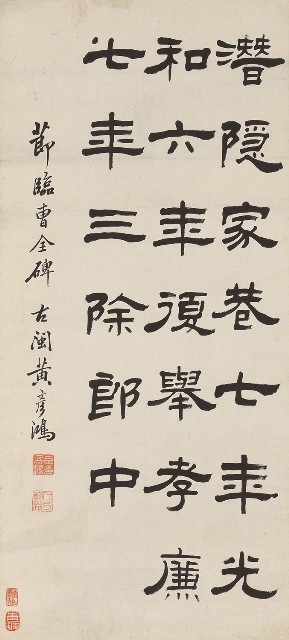 潛隱家巷七年光
和六年復舉孝廉
七年三除郎中
節臨曹全碑 古閩黃彥鴻